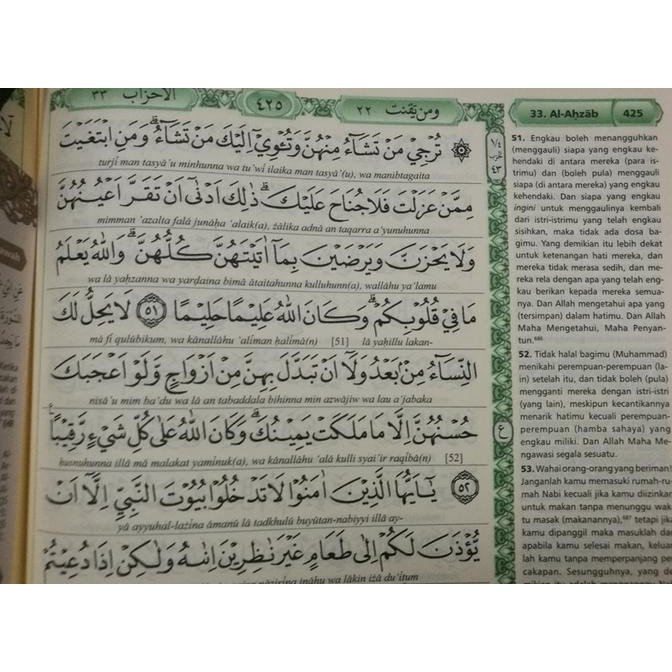 الاحزاب ٣٣
٤٢٥
ومن يقنت ٢٢
33. Al-Aḥzāb 425
تُرْجِيْ مَنْ تَشَاۤءُ مِنْهُنَّ وَتُـْٔوِيْٓ اِلَيْكَ مَنْ تَشَاۤءُۗ وَمَنِ ابْتَغَيْتَ
turjī man tasyā'u minhunna wa tu'wī ilaika man tasyā'(u), wa manibtagaita
مِمَّنْ عَزَلْتَ فَلَا جُنَاحَ عَلَيْكَۗ ذٰلِكَ اَدْنٰٓى اَنْ تَقَرَّ اَعْيُنُهُنَّ
mimman 'azalta falā junāḥa 'alaik(a), żālika adnā an taqarra a'yunuhunna
وَلَا يَحْزَنَّ وَيَرْضَيْنَ بِمَآ اٰتَيْتَهُنَّ كُلُّهُنَّۗ وَاللّٰهُ يَعْلَمُ
wa lā yaḥzanna wa yarḍaina bimā ātaitahunna kulluhunn(a), wallāhu ya'lamu
مَا فِيْ قُلُوْبِكُمْۗ وَكَانَ اللّٰهُ عَلِيْمًا حَلِيْمًا ٥١ لَا يَحِلُّ لَكَ
mā fī qulūbikum, wa kānallāhu 'alīman ḥalīmā(n) [51] lā yaḥillu lakan-
النِّسَاۤءُ مِنْۢ بَعْدُ وَلَآ اَنْ تَبَدَّلَ بِهِنَّ مِنْ اَزْوَاجٍ وَّلَوْ اَعْجَبَكَ
nisā'u mim ba'du wa lā an tabaddala bihinna min azwājiw wa lau a'jabaka
حُسْنُهُنَّ اِلَّا مَا مَلَكَتْ يَمِيْنُكَۗ وَكَانَ اللّٰهُ عَلٰى كُلِّ شَيْءٍ رَّقِيْبًا
ḥusnuhunna illā mā malakat yamīnuk(a), wa kānallāhu 'alā kulli syai'ir raqībā(n) [52]
٥٢ يٰٓاَيُّهَا الَّذِيْنَ اٰمَنُوْا لَا تَدْخُلُوْا بُيُوْتَ النَّبِيِّ اِلَّآ اَنْ
yā ayyuhal-lażīna āmanū lā tadkhulū buyūtan-nabiyyi illā ay-
يُّؤْذَنَ لَكُمْ اِلٰى طَعَامٍ غَيْرَ نٰظِرِيْنَ اِنٰىهُ وَلٰكِنْ اِذَا دُعِيْتُمْ
nāẓirīna ināhu wa lākin iżā du'ītum
51. Engkau boleh menangguhkan
(menggauli) siapa yang engkau ke-
hendaki di antara mereka (para is-
trimu) dan (boleh pula) menggauli
siapa (di antara mereka) yang engkau
kehendaki. Dan siapa yang engkau
ingini untuk menggaulinya kembali
dari istri-istrimu yang telah engkau
sisihkan, maka tidak ada dosa ba-
gimu. Yang demikian itu lebih dekat
untuk ketenangan hati mereka, dan
mereka tidak merasa sedih, dan me-
reka rela dengan apa yang telah eng-
kau berikan kepada mereka semua-
nya. Dan Allah mengetahui apa yang
(tersimpan) dalam hatimu. Dan Allah
Maha Mengetahui, Maha Penyan-
tun.⁶⁸⁶
52. Tidak halal bagimu (Muhammad)
menikahi perempuan-perempuan (la-
in) setelah itu, dan tidak boleh (pula)
mengganti mereka dengan istri-istri
(yang lain), meskipun kecantikannya
menarik hatimu kecuali perempuan-
perempuan (hamba sahaya) yang
engkau miliki. Dan Allah Maha Me-
ngawasi segala sesuatu.
53. Wahai orang-orang yang beriman!
Janganlah kamu memasuki rumah-ru-
mah Nabi kecuali jika kamu diizinkan
untuk makan tanpa menunggu wak-
tu masak (makanannya),⁶⁸⁷ tetapi jika
kamu dipanggil maka masuklah dan
apabila kamu selesai makan, keluar-
lah kamu tanpa memperpanjang per-
cakapan. Sesungguhnya, yang de-